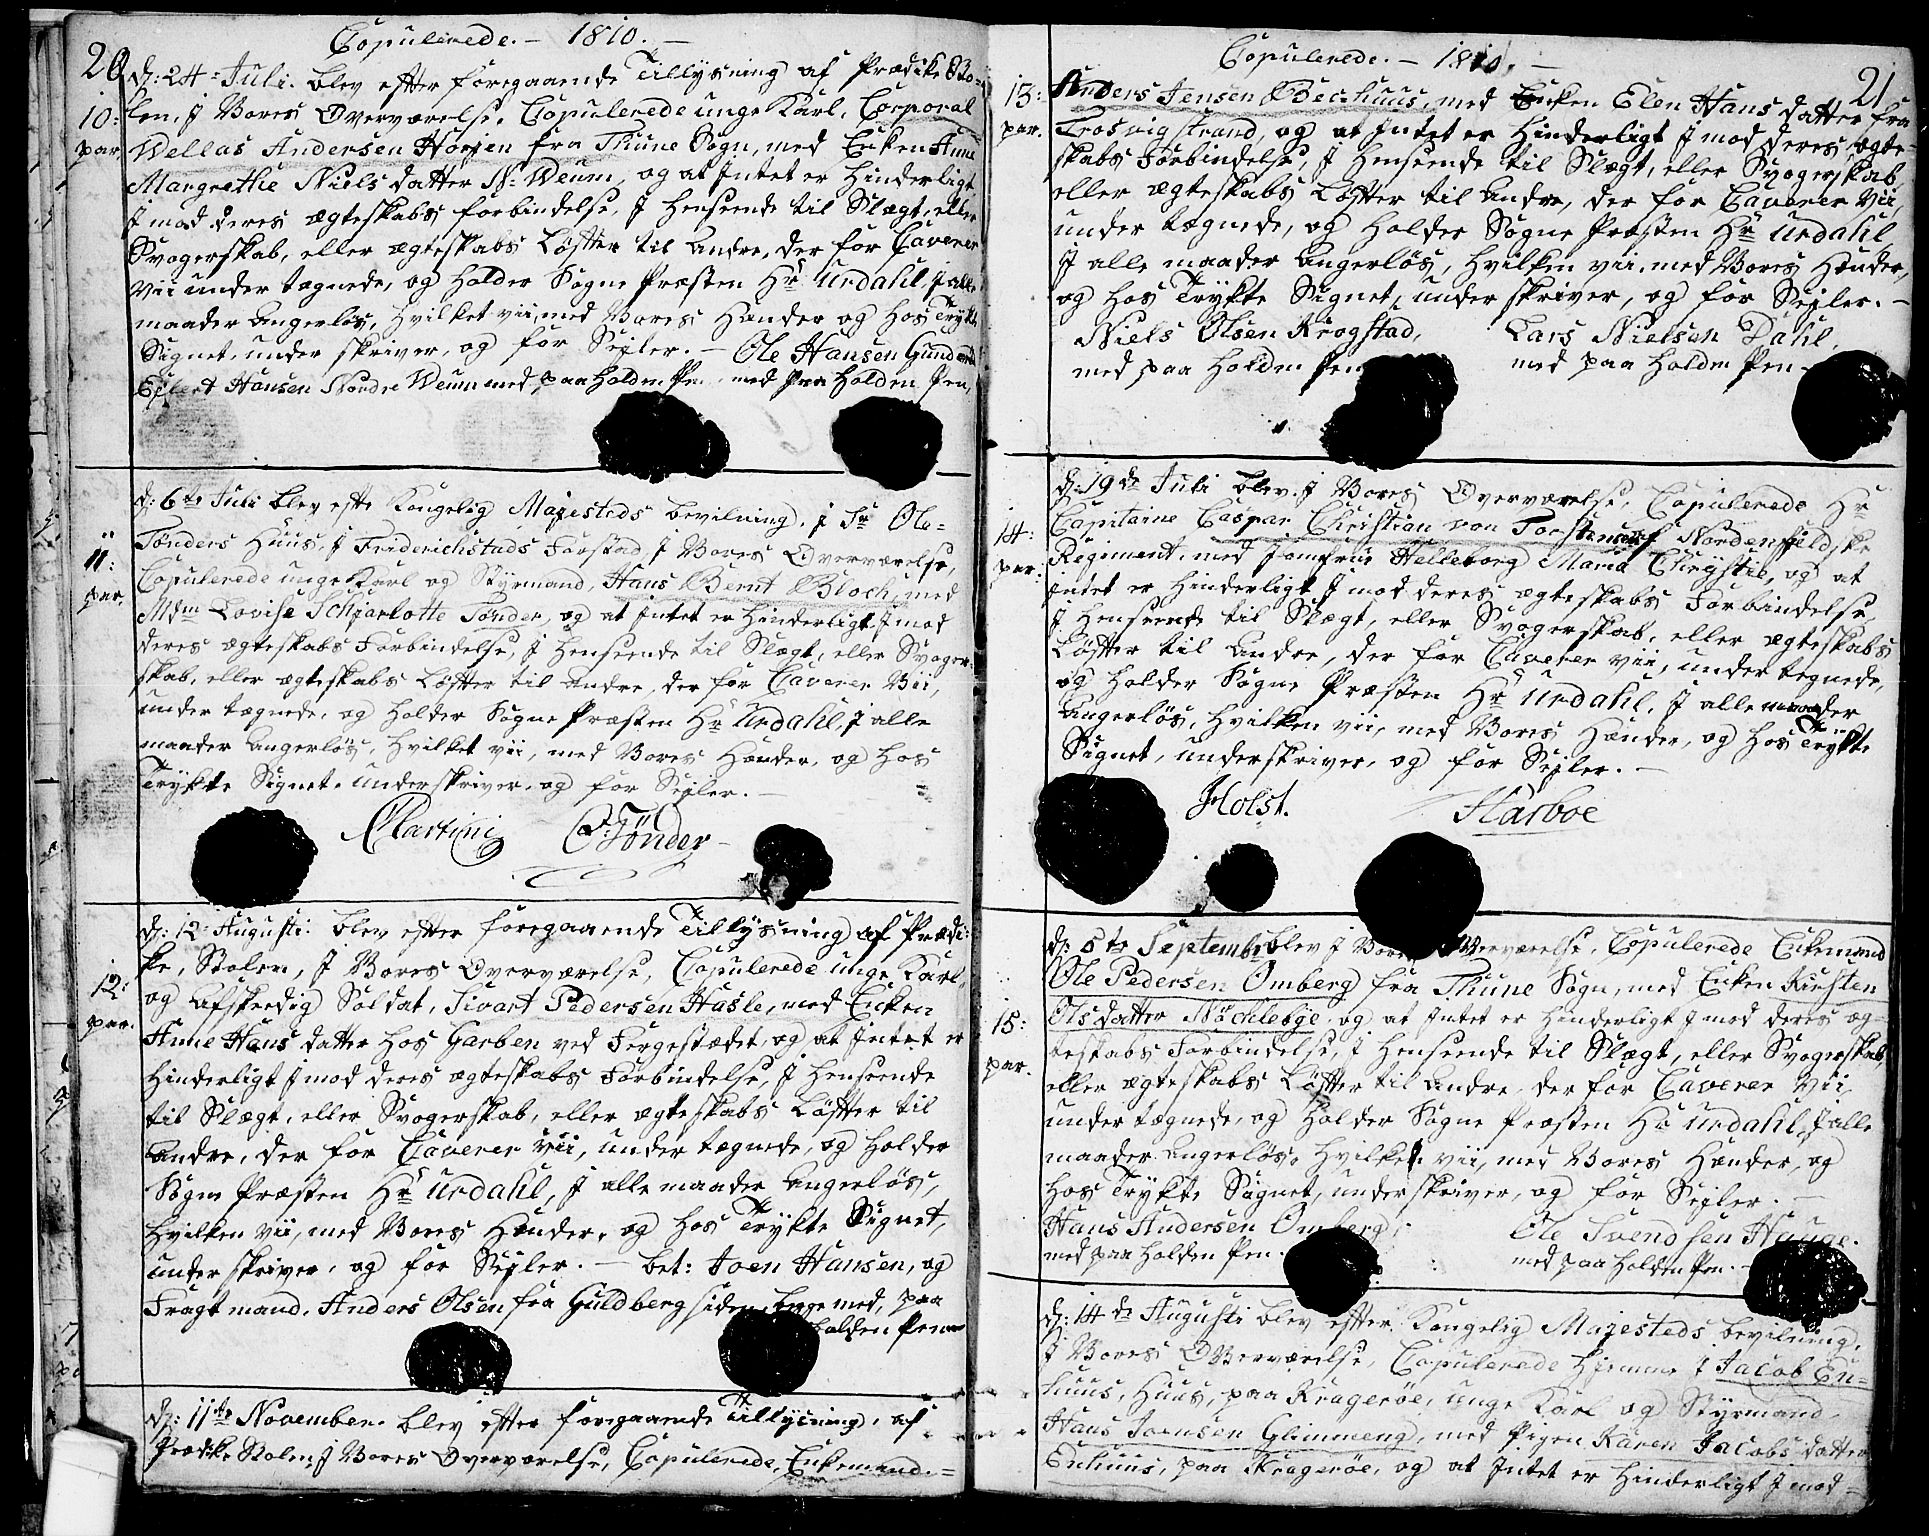 20
Copulerede. – 1810. –
d: 24 Juli. blev efter foregaaende Tillysning af Prædike Sto=
10: len, J Vores Overværelse, Copulerede unge Karl, Corporal
par Wellas Andersen Horjen fra Thune Sogn, med Enken Anne
Margrethe Niels datter N: Weum, og at Intet er Hinderligt
J mod deres ægteskabs forbindelse, J Henseende til Slægt, eller
Svogerskab, eller ægteskabs Løfter til Andre, der for Caverer
vii under tægnede, og Holder Sogne Præsten Hr Urdahl, J alle
maader Angerløs, Hvilket vii, med Vores Hænder og Hos Trykte
Signet, under skriver, og for Sejler. – Ole Hansen Gund
Ejlert Hansen Nordre Weum med paa Holden Pen, med paa Holden Pen,
d: 6te Juli blev efter Kongelig Majesteds bevilning, J Sr Ole
Tønders Huus, J Friderichstads Forstad, J Vores Overværelse,
11: Copulerede unge Karl og Styrmand, Hans Bernt Bloch, med
par. Mdm Lovise Schjarlotte Tønder, og at Intet er Hinderligt J mod
deres ægteskabs Forbindelse, J Henseende til Slægt, eller Svoger=
skab, eller ægteskabs Løfter til Andre, der for Caverer Vii,
under tægnede, og Holder Sogne Præsten Hr Urdahl, J alle
maader Angerløs, Hvilket vii, med Vores Hænder, og Hos
Trykte Signet, underskriver, og for Sejler. –
Martini O: Tönder
d: 12 Augusti. blev efter foregaaende Tillysning af Prædi=
ke, Stolen, J Vores Overværelse, Copulerede unge Karl,
12: og Afskeedig Soldat, Sivart Pedersen Hasle, med Enken
par. Anne Hans datter Hos Garben ved Fergestædet, og at Intet er
Hinderligt J mod deres ægteskabs Forbindelse, J Henseende
til Slægt, eller Svogerskab, eller ægteskabs Løfter til
Andre, der for Caverer vii, under tægnede, og Holder
Sogne Præsten Hr Urdahl, J alle maader Angerløs,
Hvilken vii, med Vores Hænder, og Hos Trykte Signet,
under skriver, og for Sejler. – bet: Joen Hansen, og
Fragtmand, Anders Olsen fra Guldberg siden, begge med, paa
Holden Pen
d: 11te November. blev efter foregaaende Tillysning, af
Prædike Stolen, J Vores Overværelse, Copulerede, Enkemand. =
21
Copulerede. – 1810. –
13: Anders Jensen Bechhuus, med Enken Elen Hans datter fra
par. Trosvig strand, og at Intet er Hinderligt J mod deres ægte=
skabs Forbindelse, J Henseende til Slægt, eller Svogerskab
eller ægteskabs Løfter til Andre, der for Caverer Vii,
under tægnede, og Holder Sogne Præsten Hr Urdahl
J alle maader Angerløs, Hvilken vii, med Vores Hænder,
og Hos Trykte Signet, under skriver, og for Sejler. –
Niels Olsen Krogstad, Lars Nielsen Dahl,
med paa Holden Pen med paa Holden Pen
d: 19de Juli blev J Vores Overværelse, Copulerede Hr
14: Capitaine Caspar Christian von Torstensen af Nordenfjeldske
par: Regiment, med Jomfrue Helleborg Maria Chrystie, og at
Intet er Hinderligt J mod deres ægteskabs Forbindelse,
J Henseende til Slægt, eller Svogerskab, eller ægteskabs
Løfter til Andre, der for Caverer vii, under tegnede,
og Holder Sogne Præsten Hr Urdahl, J alle maader
Angerløs, Hvilken vii, med Vores Hænder, og Hos Trykte
Signet, underskriver, og for Sejler. –
Holst. Harboe
d: 5te Septembr blev J Vores Overværelse, Copulerede Enkemand
Ole Pedersen Omberg fra Thune Sogn, med Enken Kirsten
15: Ols datter Nöchlebye, og at Intet er Hinderligt J mod deres æg=
par. teskabs Forbindelse, J Henseende til Slægt, eller Svogerskab,
eller ægteskabs Løfter til Andre, der for Caverer vii
under tægnede, og Holder Sogne Præsten Hr Urdahl, J alle
maader Angerløs, Hvilket vii, med Vores Hænder, og
Hos Trykte Signet, underskriver, og for Sejler. –
Hans Andersen Omberg, Ole Svendsen Hauge.
med paa Holden Pen. med paa Holden Pen. –
d: 14de Augusti blev efter Kongelig Majesteds bevilning,
J Vores Overværelse, Copulerede Hjemme J Jacob En=
huus, Huus, paa Kragerøe, unge Karl og Styrmand
Hans Joensen Glimmeng, med Pigen Karen Jacobs datter
Enhuus, paa Kragerøe, og at Intet er Hinderligt J mod =